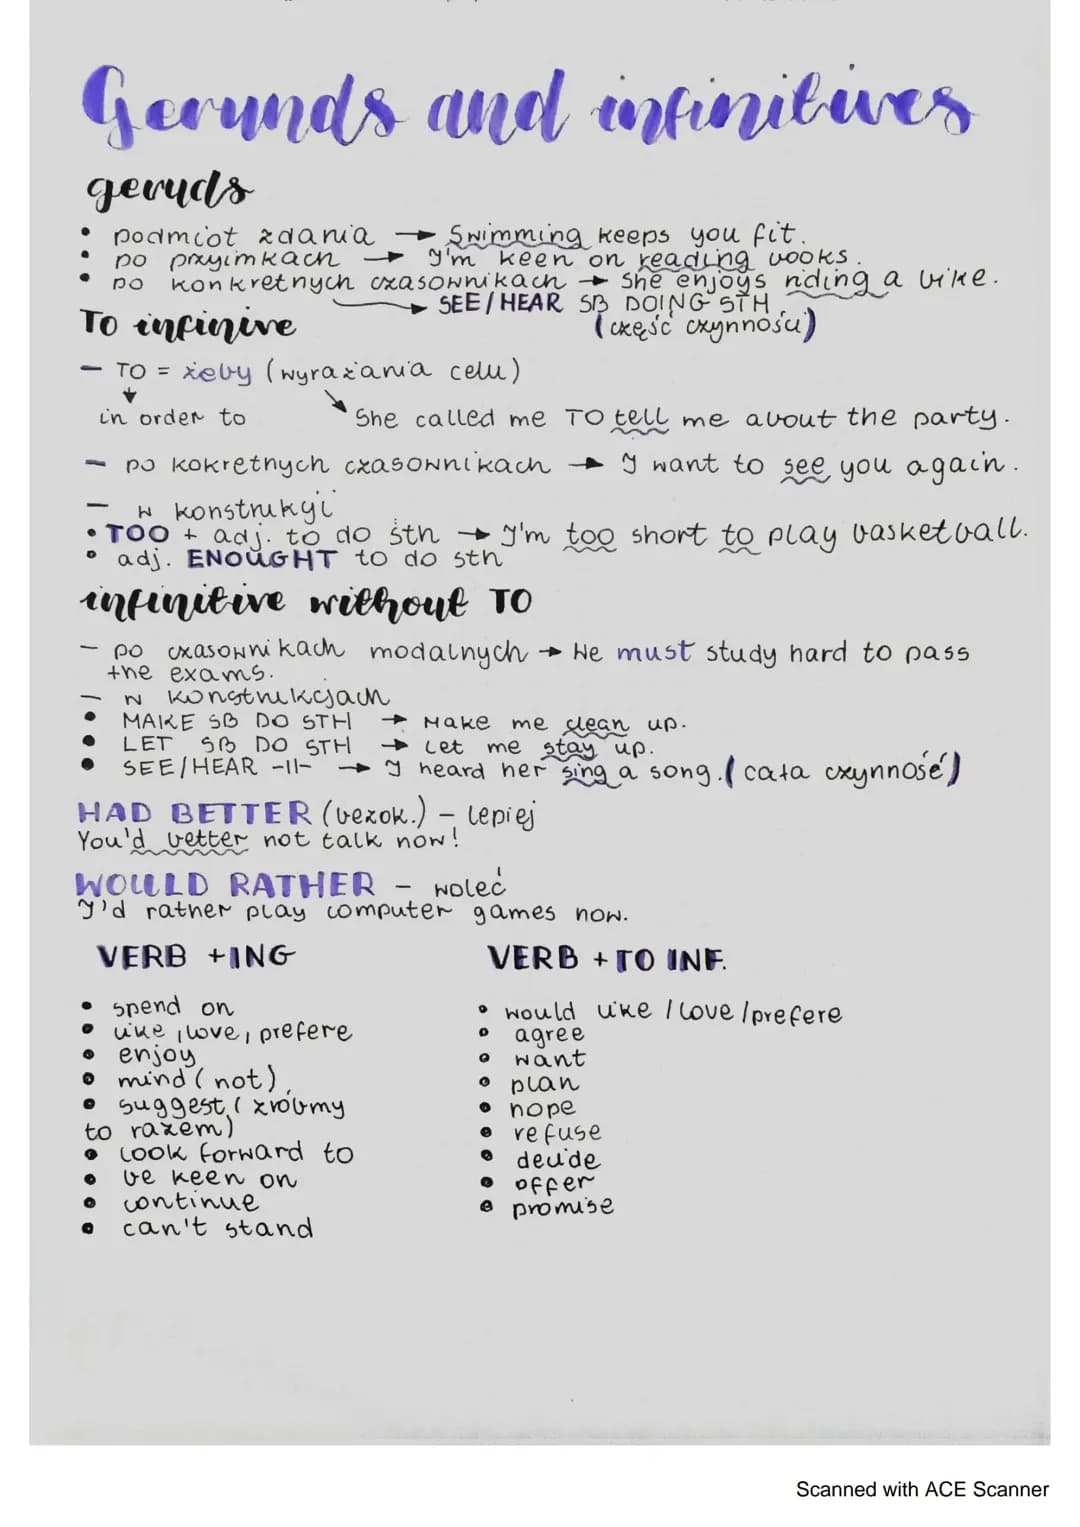 Gerunds and infinitives
geruds
• podmiot zdania → Swimming keeps you fit.
• po przyimkach → I'm keen on reading books.
• po konkretnych czasownikach → She enjoys riding a bike.
→ SEE/HEAR SB DOING STH
(część czynności)
To infinive
- TO = żeby (wyrażania celu)
in order to She called me TO tell me about the party.
- po kokretnych czasownikach → I want to see you again.
- w konstrukyi
• TOO + adj. to do sth → I'm too short to play basketball.
• adj. ENOUGHT to do sth
infinitive without TO
- po czasownikach modalnych → He must study hard to pass
the exams.
- w konstrukcjach
• MAKE SB DO STH → Make me clean up.
• LET SB DO STH → Let me stay up.
• SEE/HEAR -11- → I heard her sing a song. (cała czynność)
HAD BETTER (bezok.) - lepiej
You'd better not talk now!
WOULD RATHER - woleć
I'd rather play computer games now.
VERB +ING
• spend on
• like, love, prefere
• enjoy
• mind (not)
• suggest (zróbmy
to razem)
• look forward to
• be keen on
• continue
• can't stand
VERB + TO INF.
• would like / love / prefere
• agree
• want
• plan
• hope
• refuse
• decide
• offer
• promise
Scanned with ACE Scanner